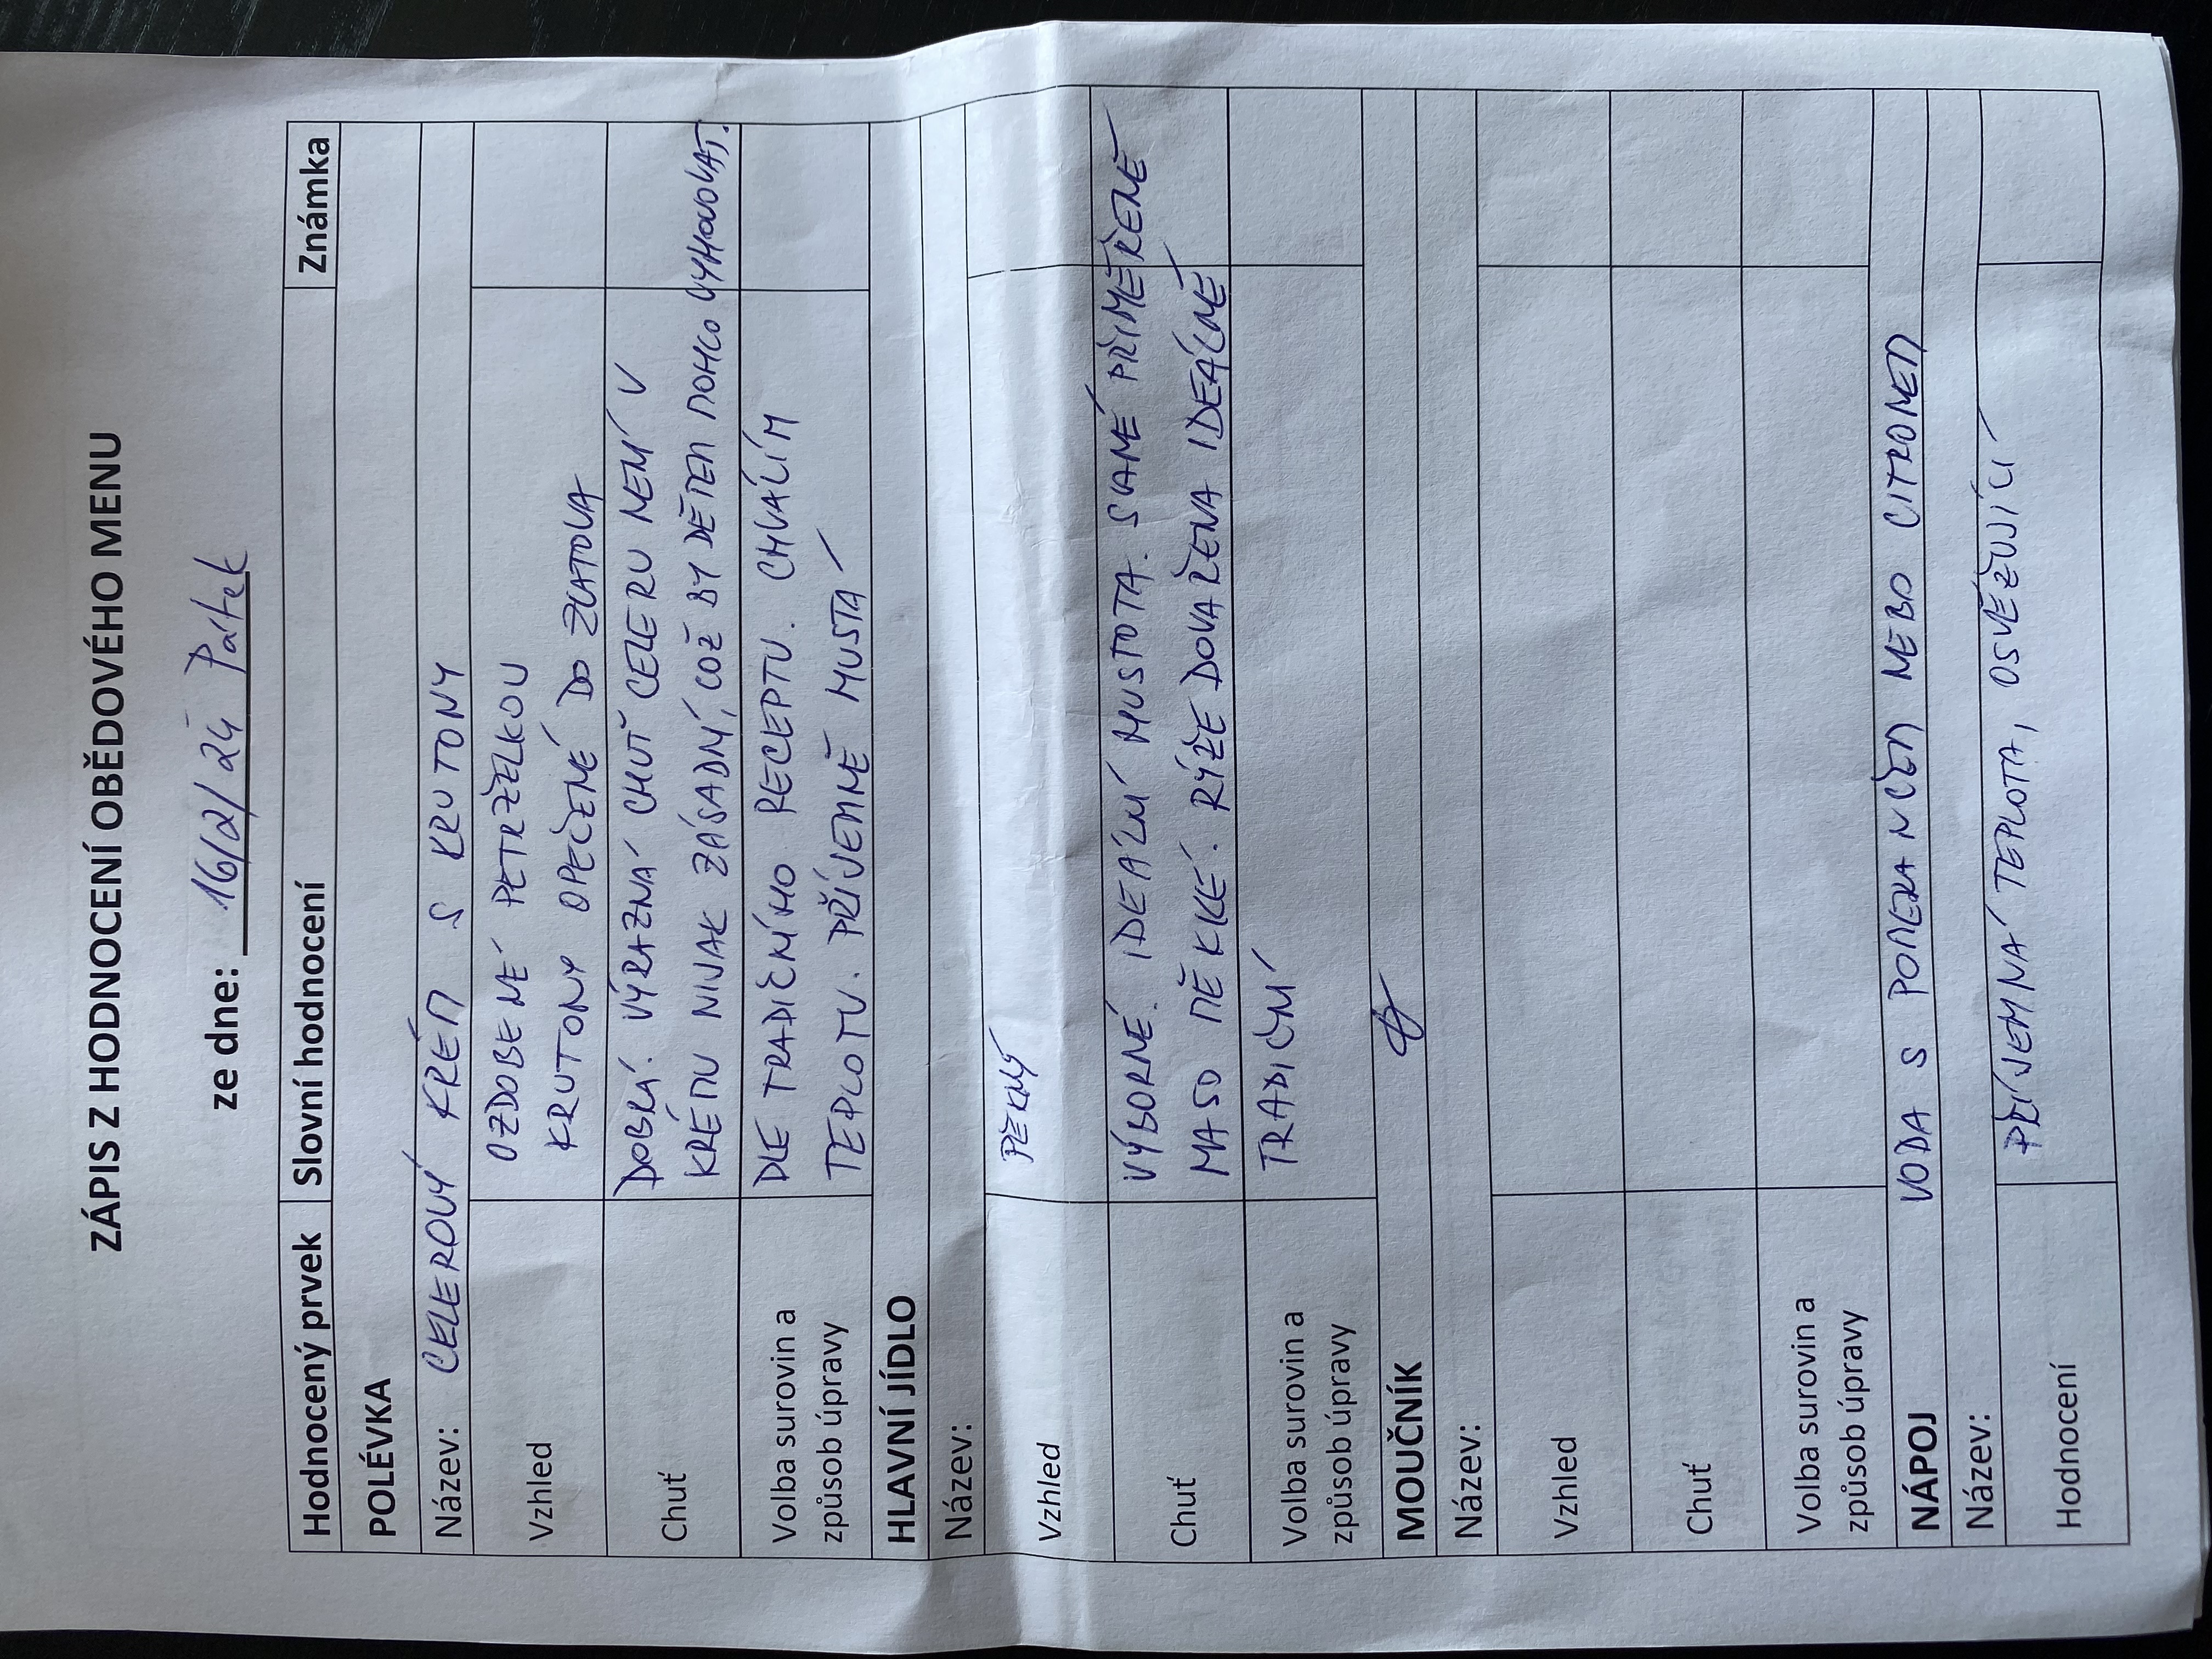 ZÁPIS Z HODNOCENÍ OBĚDOVÉHO MENU
ze dne: 16/2/24 Pátek
Hodnocený prvek Slovní hodnocení Známka
POLÉVKA
Název: CELEROVÝ KRÉM S KRUTONY
Vzhled
OZDOBENÉ PETRŽELKOU
KRUTONY OPEČENÉ DO ZLATOVA
Chuť
DOBRÁ. VÝRAZNÁ CHUŤ CELERU NENÍ V
KRÉMU NIJAK ZÁSADNÍ, COŽ BY DĚTEM MOHLO VYHOVOVAT.
Volba surovin a
způsob úpravy
DLE TRADIČNÍHO RECEPTU. CHVÁLÍM
TEPLOTU. PŘÍJEMNĚ HUSTÁ
HLAVNÍ JÍDLO
Název:
Vzhled
PĚKNÝ
Chuť
VÝBORNÉ. IDEÁLNÍ HUSTOTA. SLANÉ PŘIMĚŘENĚ
MASO MĚKKÉ. RÝŽE DOVAŘENA IDEÁLNĚ
Volba surovin a
způsob úpravy
TRADIČNÍ
MOUČNÍK
Název:
Vzhled
Chuť
Volba surovin a
způsob úpravy
NÁPOJ
VODA S POMERANČEM NEBO CITRONEM
Název:
Hodnocení
PŘÍJEMNÁ TEPLOTA, OSVĚŽUJÍCÍ